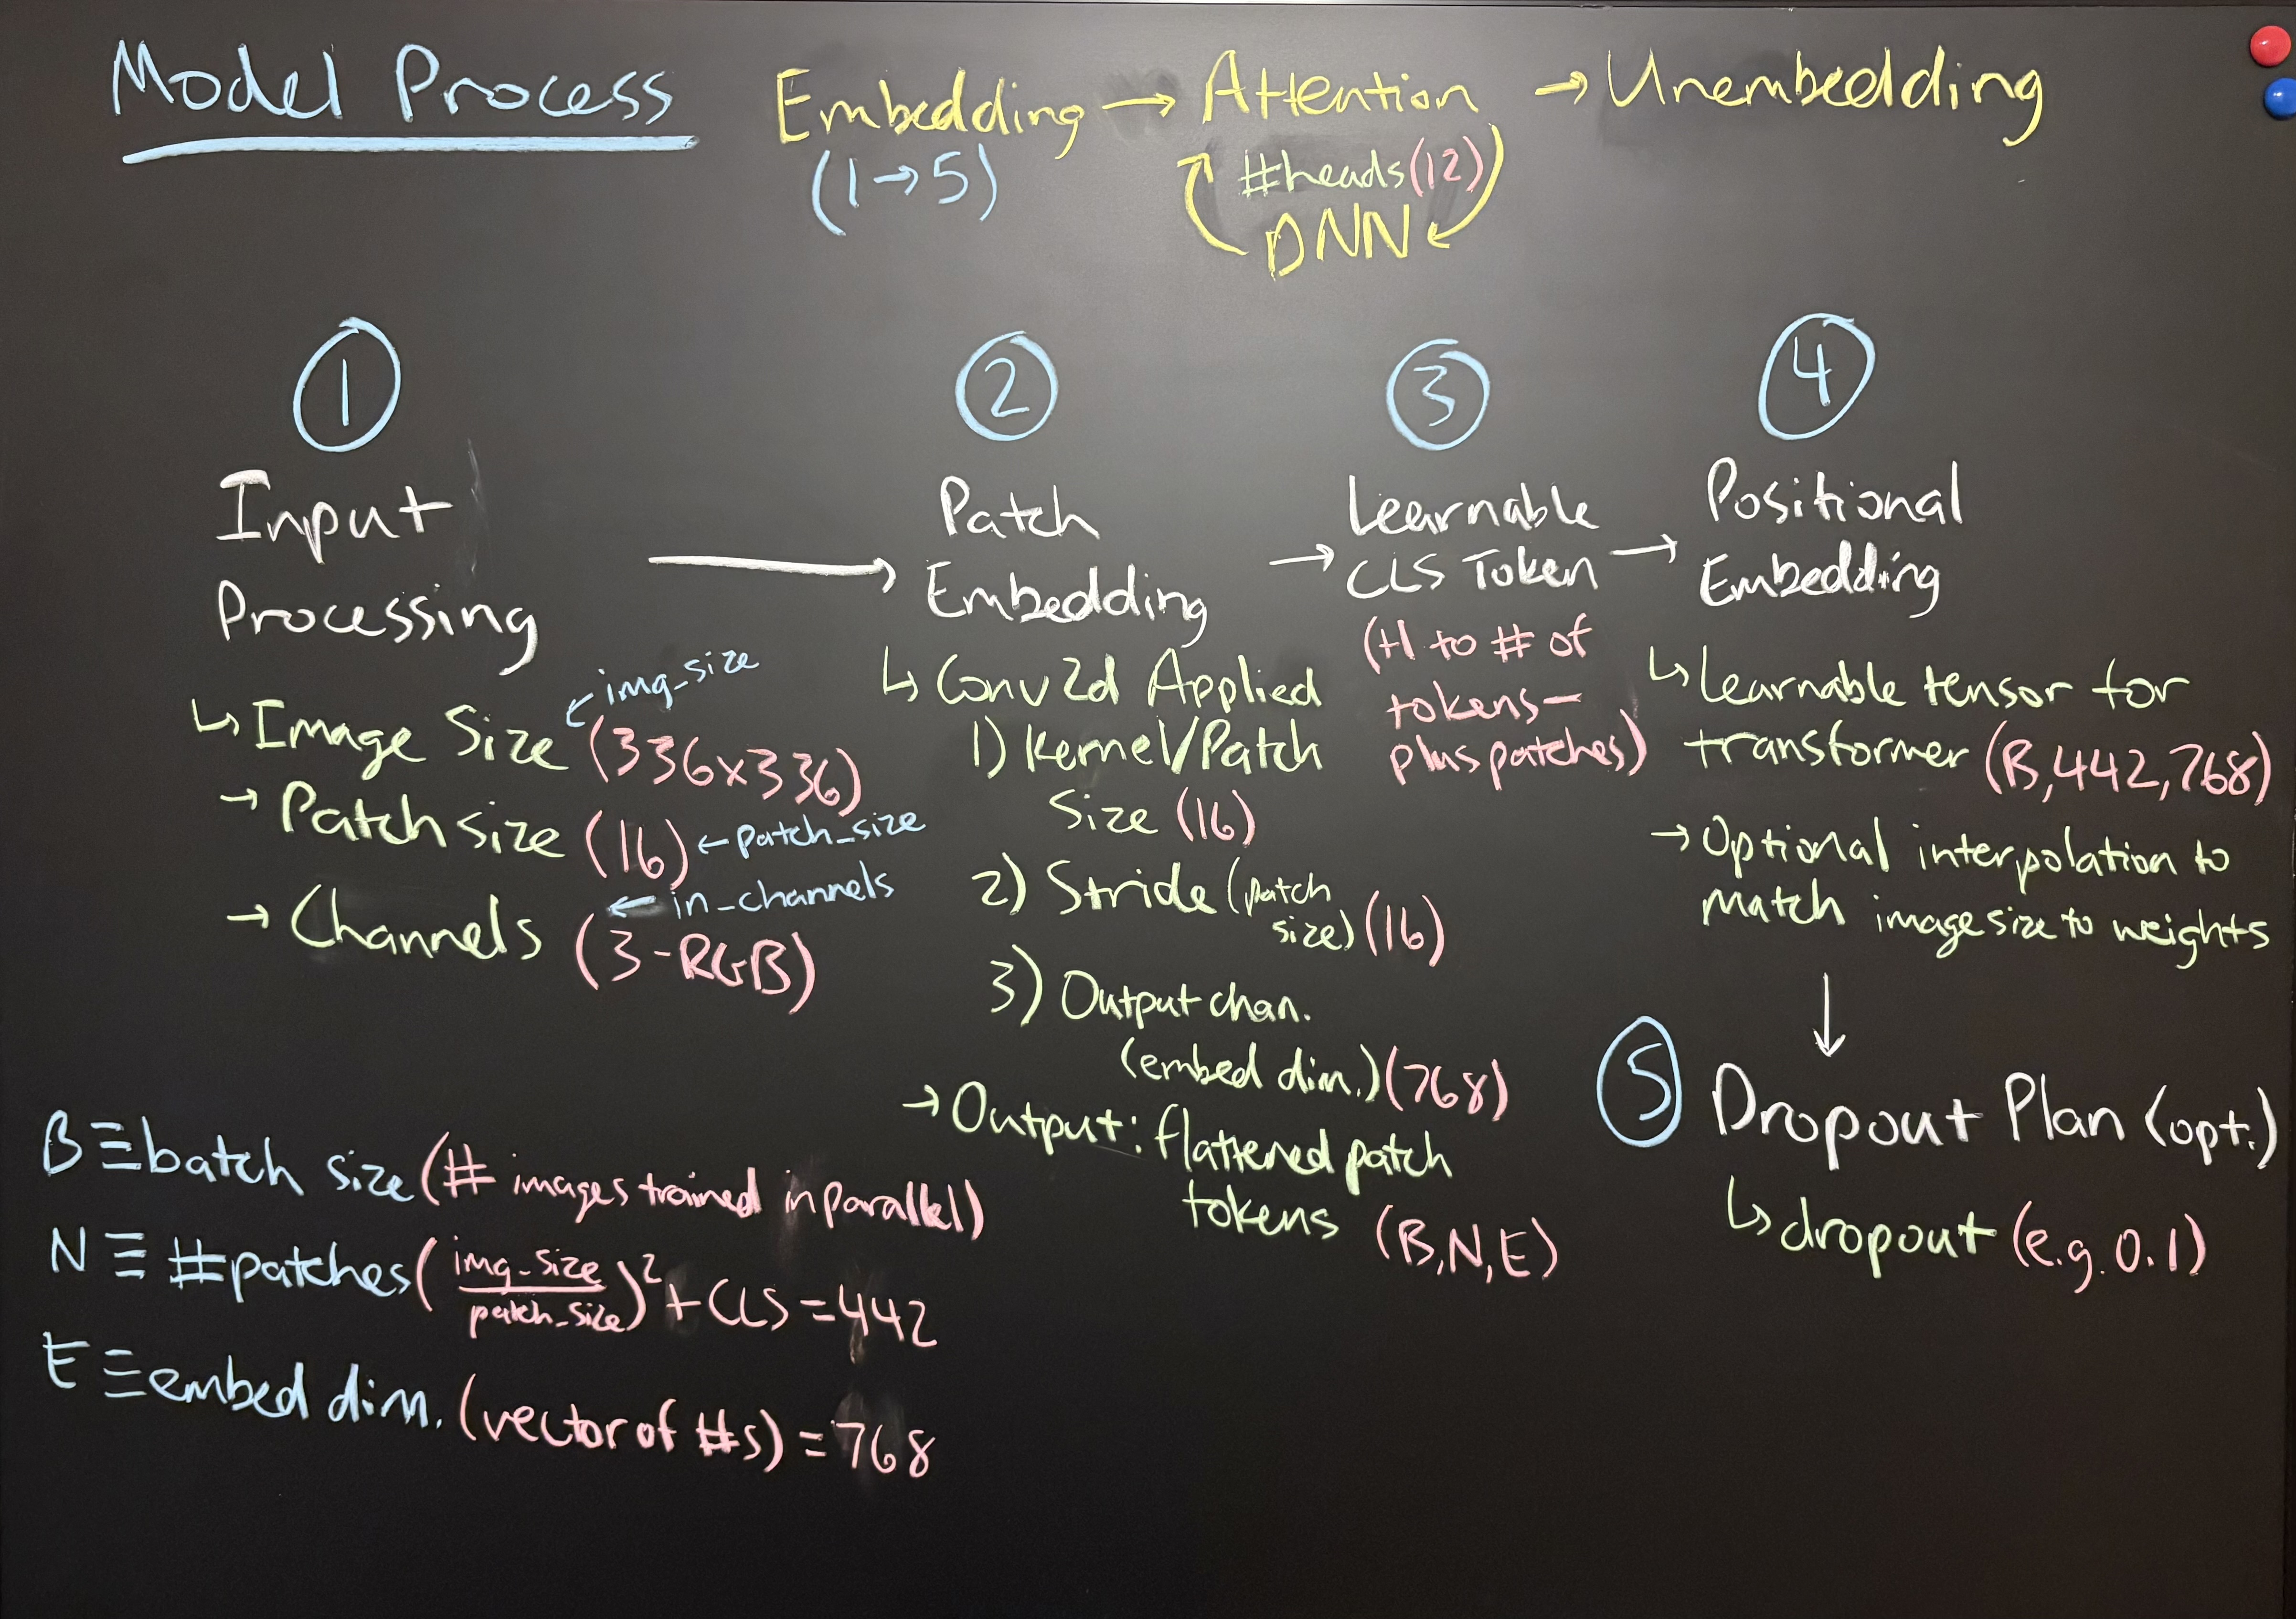 Model Process
Embedding → Attention → Unembedding
(1→5)
#heads(12)
DNN
1
Input
Processing
↳ Image Size (336x336)
← img_size
→ Patch size (16) ← patch_size
→ Channels (3-RGB)
← in_channels
2
Patch
Embedding
↳ Conv2d Applied
1) Kernel/Patch
Size (16)
2) Stride (patch
size) (16)
3) Output chan.
(embed dim.) (768)
→ Output: flattened patch
tokens (B,N,E)
3
Learnable
CLS Token
(+1 to # of
tokens-
plus patches)
4
Positional
Embedding
↳ Learnable tensor for
transformer (B,442,768)
→ Optional interpolation to
match image size to weights
5
Dropout Plan (opt.)
↳ dropout (e.g. 0.1)
B ≡ batch size (# images trained in parallel)
N ≡ #patches (img_size/patch_size)² + CLS = 442
E ≡ embed dim. (vector of #s) = 768